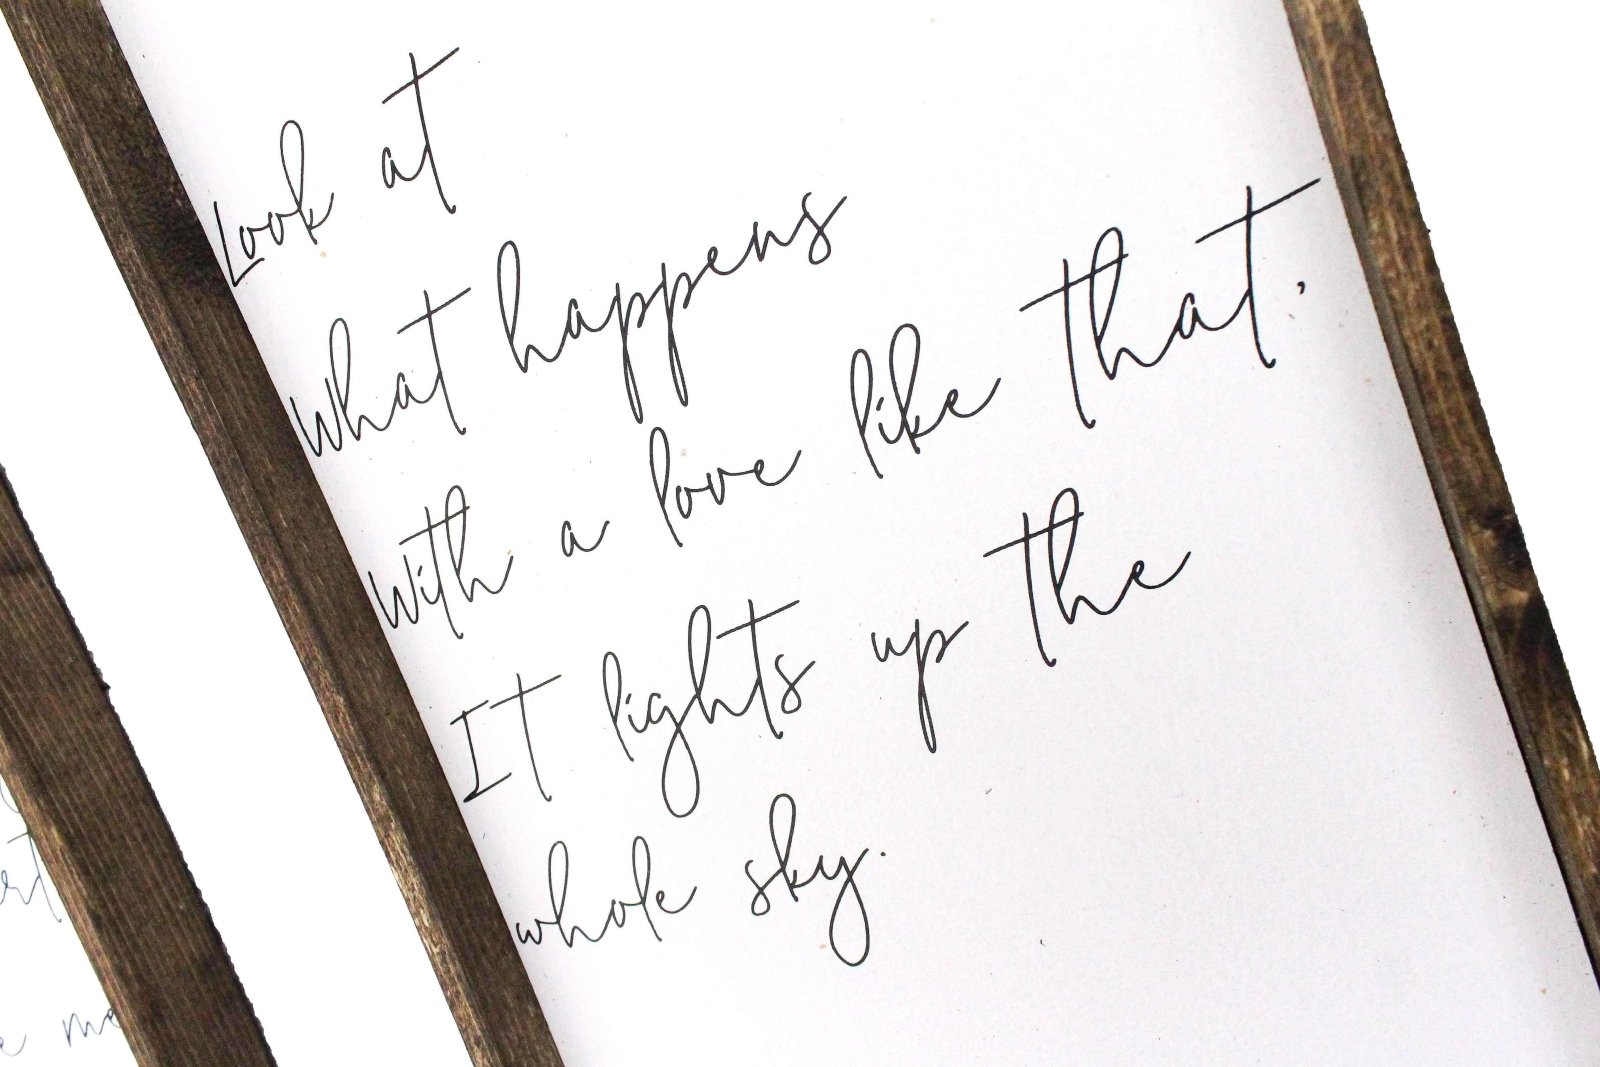 Look at
what happens
With a love like that,
It lights up the
whole sky.
me